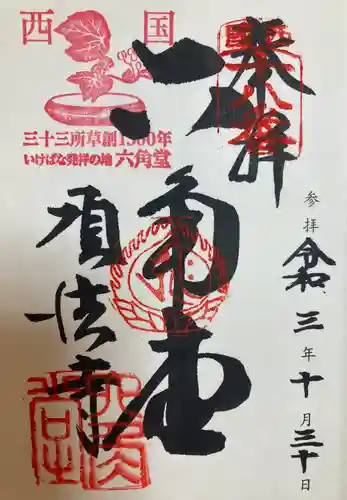 西国
三十三所草創1300年
いけばな発祥の地 六角堂
奉拝
六角堂
頂法寺
参拝 令和三年十月三十日